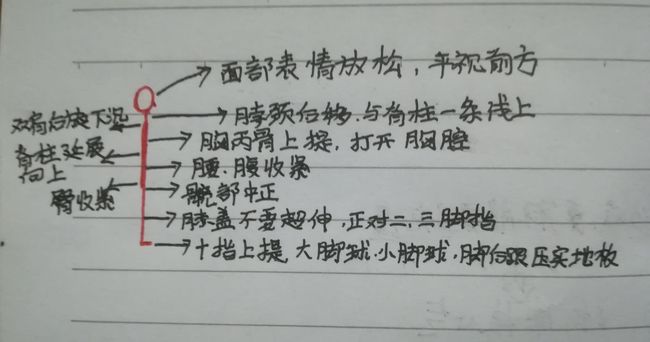 面部表情放松，平视前方
双肩后旋下沉
脖颈后移.与脊柱一条线上
胸两骨上提，打开胸腔
脊柱延展
向上
腰.腹收紧
臀收紧
髋部中正
膝盖不要超伸，正对二、三脚指
十指上提，大脚球.小脚球.脚后跟压实地板